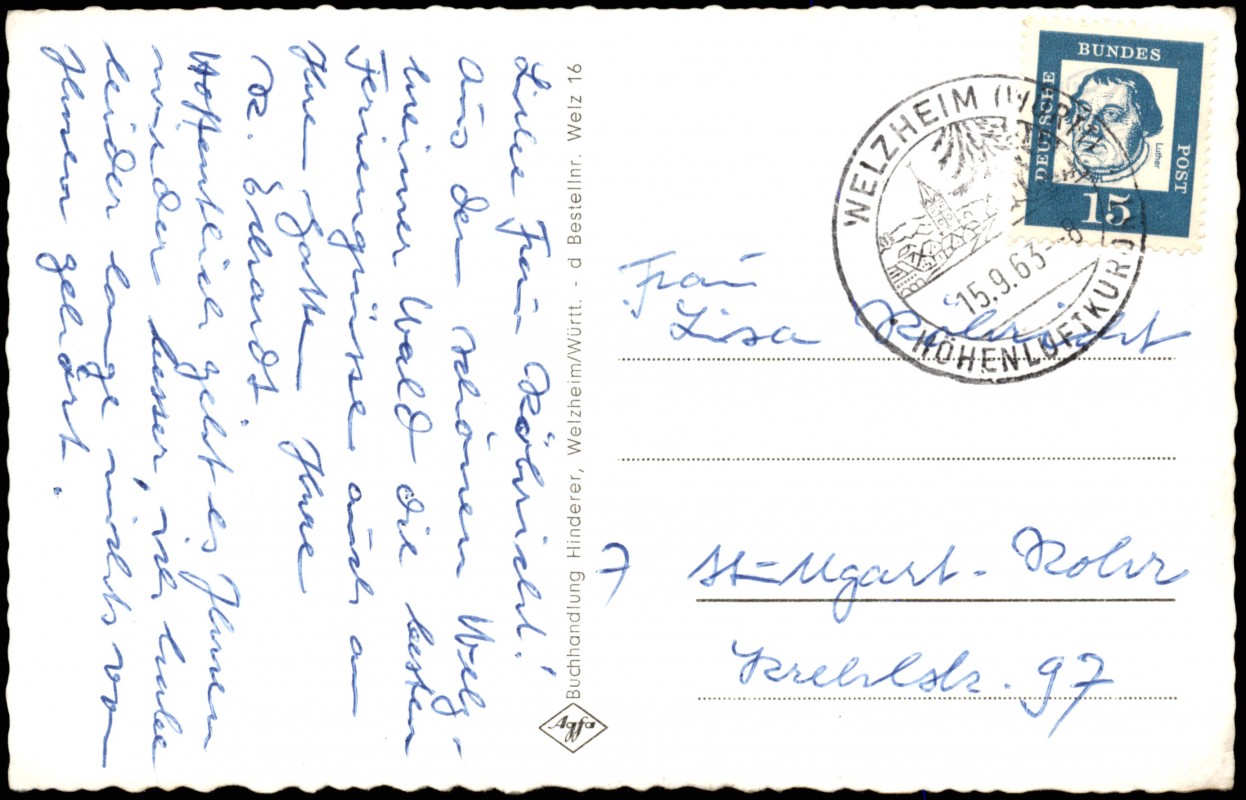 Liebe Frau Röhricht!
Aus dem schönen Welz-
heimer Wald die besten
Feriengrüsse auch an
Ihre Gatten Ihre
R. Erhardt.
Hoffentlich geht es Ihnen
wieder besser, ich habe
leider lange nichts von
Ihnen gehört.
Buchhandlung Hinderer, Welzheim/Württ. - d Bestellnr. Welz 16
Agfa
DEUTSCHE
BUNDES
POST
Luther
15
WELZHEIM (WÜRTT)
15.9.63-8
HÖHENLUFTKURO
Frau
Lisa Röhricht
7 Stuttgart-Rohr
Krehlstr. 97